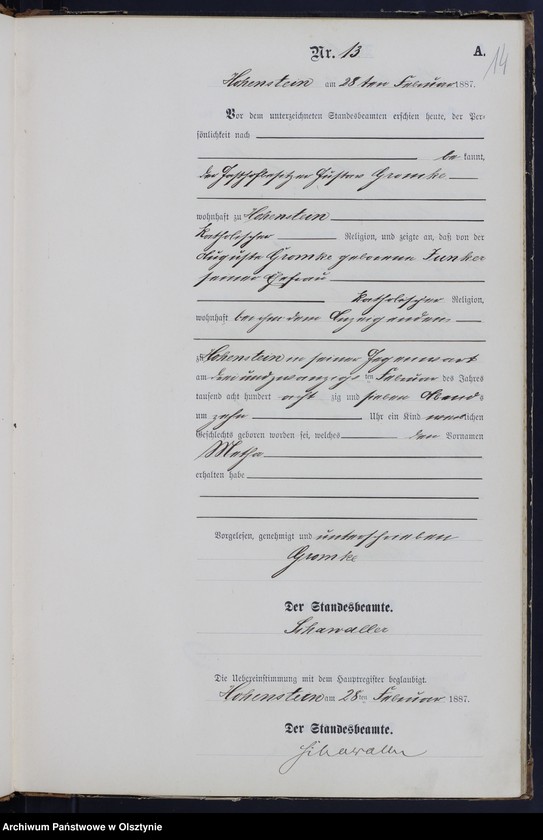 Nr. 13
A.
14
Hohenstein am 28ten Februar 1887.
Vor dem unterzeichneten Standesbeamten erschien heute, der Per-
sönlichkeit nach
be kannt,
der Gasthofbesitzer Gustav Gromke
wohnhaft zu Hohenstein
katholischer Religion, und zeigte an, daß von der
Auguste Gromke geborenen Junker
seiner Ehefrau
katholischer Religion,
wohnhaft bei ihm dem Anzeigenden
zu Hohenstein in seiner Gegenwart
am dreiundzwanzigs ten Februar des Jahres
tausend acht hundert acht zig und sieben Abends
um zehn Uhr ein Kind weiblichen
Geschlechts geboren worden sei, welches den Vornamen
Metha
erhalten habe
Vorgelesen, genehmigt und unterschrieben
Gromke
Der Standesbeamte.
Schawaller
Die Uebereinstimmung mit dem Hauptregister beglaubigt.
Hohenstein am 28ten Februar 1887.
Der Standesbeamte.
Schawaller
Archiwum Państwowe w Olsztynie